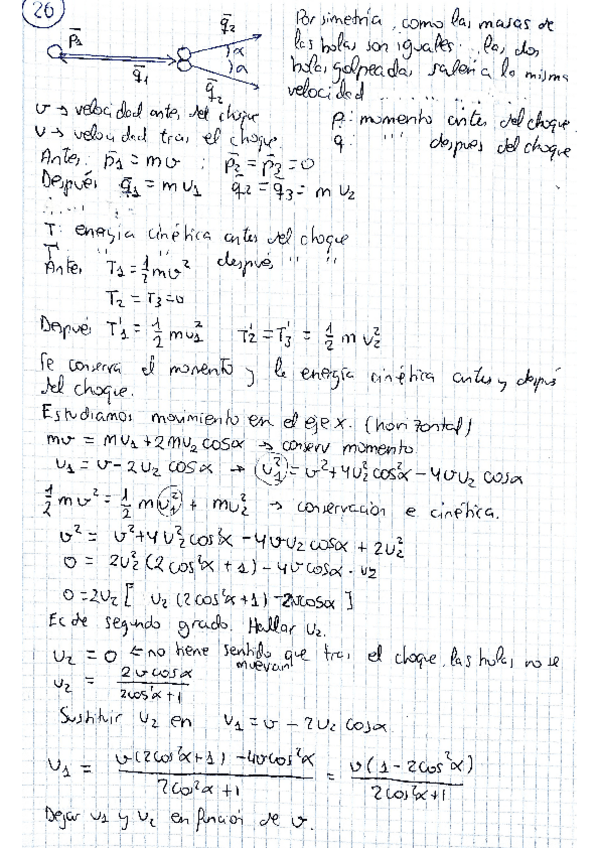 26
p̄₁ q̄₁ q̄₂ α α q̄₂
Por simetría, como las masas de
las bolas son iguales ∴ las dos
bolas golpeadas saldrán la misma
velocidad
v → velocidad antes del choque
V → velocidad tras el choque.
p: momento antes del choque.
q: " después del choque
Antes: p̄₁ = mv ; p̄₂ = p̄₃ = 0
Después q̄₁ = m v₁ q̄₂ = q̄₃ = m v₂
T: energía cinética antes del choque
T' " " después " "
Antes T₁ = ½ mv²
T₂ = T₃ = 0
Después T₁' = ½ m v₁² T₂' = T₃' = ½ m v₂²
Se conserva el momento y la energía cinética antes y después
del choque.
Estudiamos movimiento en el eje x. (horizontal)
mv = mv₁ + 2mv₂ cosα → conserv momento
v₁ = v - 2v₂ cosα → v₁² = v² + 4v₂² cos²α - 4v v₂ cosα
½ mv² = ½ m v₁² + mv₂² → conservación e cinética.
v² = v² + 4v₂² cos²α - 4v v₂ cosα + 2v₂²
0 = 2v₂² (2cos²α + 1) - 4v cosα · v₂
0 = 2v₂ [ v₂ (2cos²α + 1) - 2v cosα ]
Ec de segundo grado. Hallar v₂.
v₂ = 0 ← no tiene sentido que tras el choque las bolas no se
muevan
v₂ = 2v cosα / 2cos²α + 1
Sustituir v₂ en v₁ = v - 2v₂ cosα
v₁ = v(2cos²α + 1) - 4v cos²α / 2cos²α + 1 = v(1 - 2cos²α) / 2cos²α + 1
Dejar v₁ y v₂ en función de v.